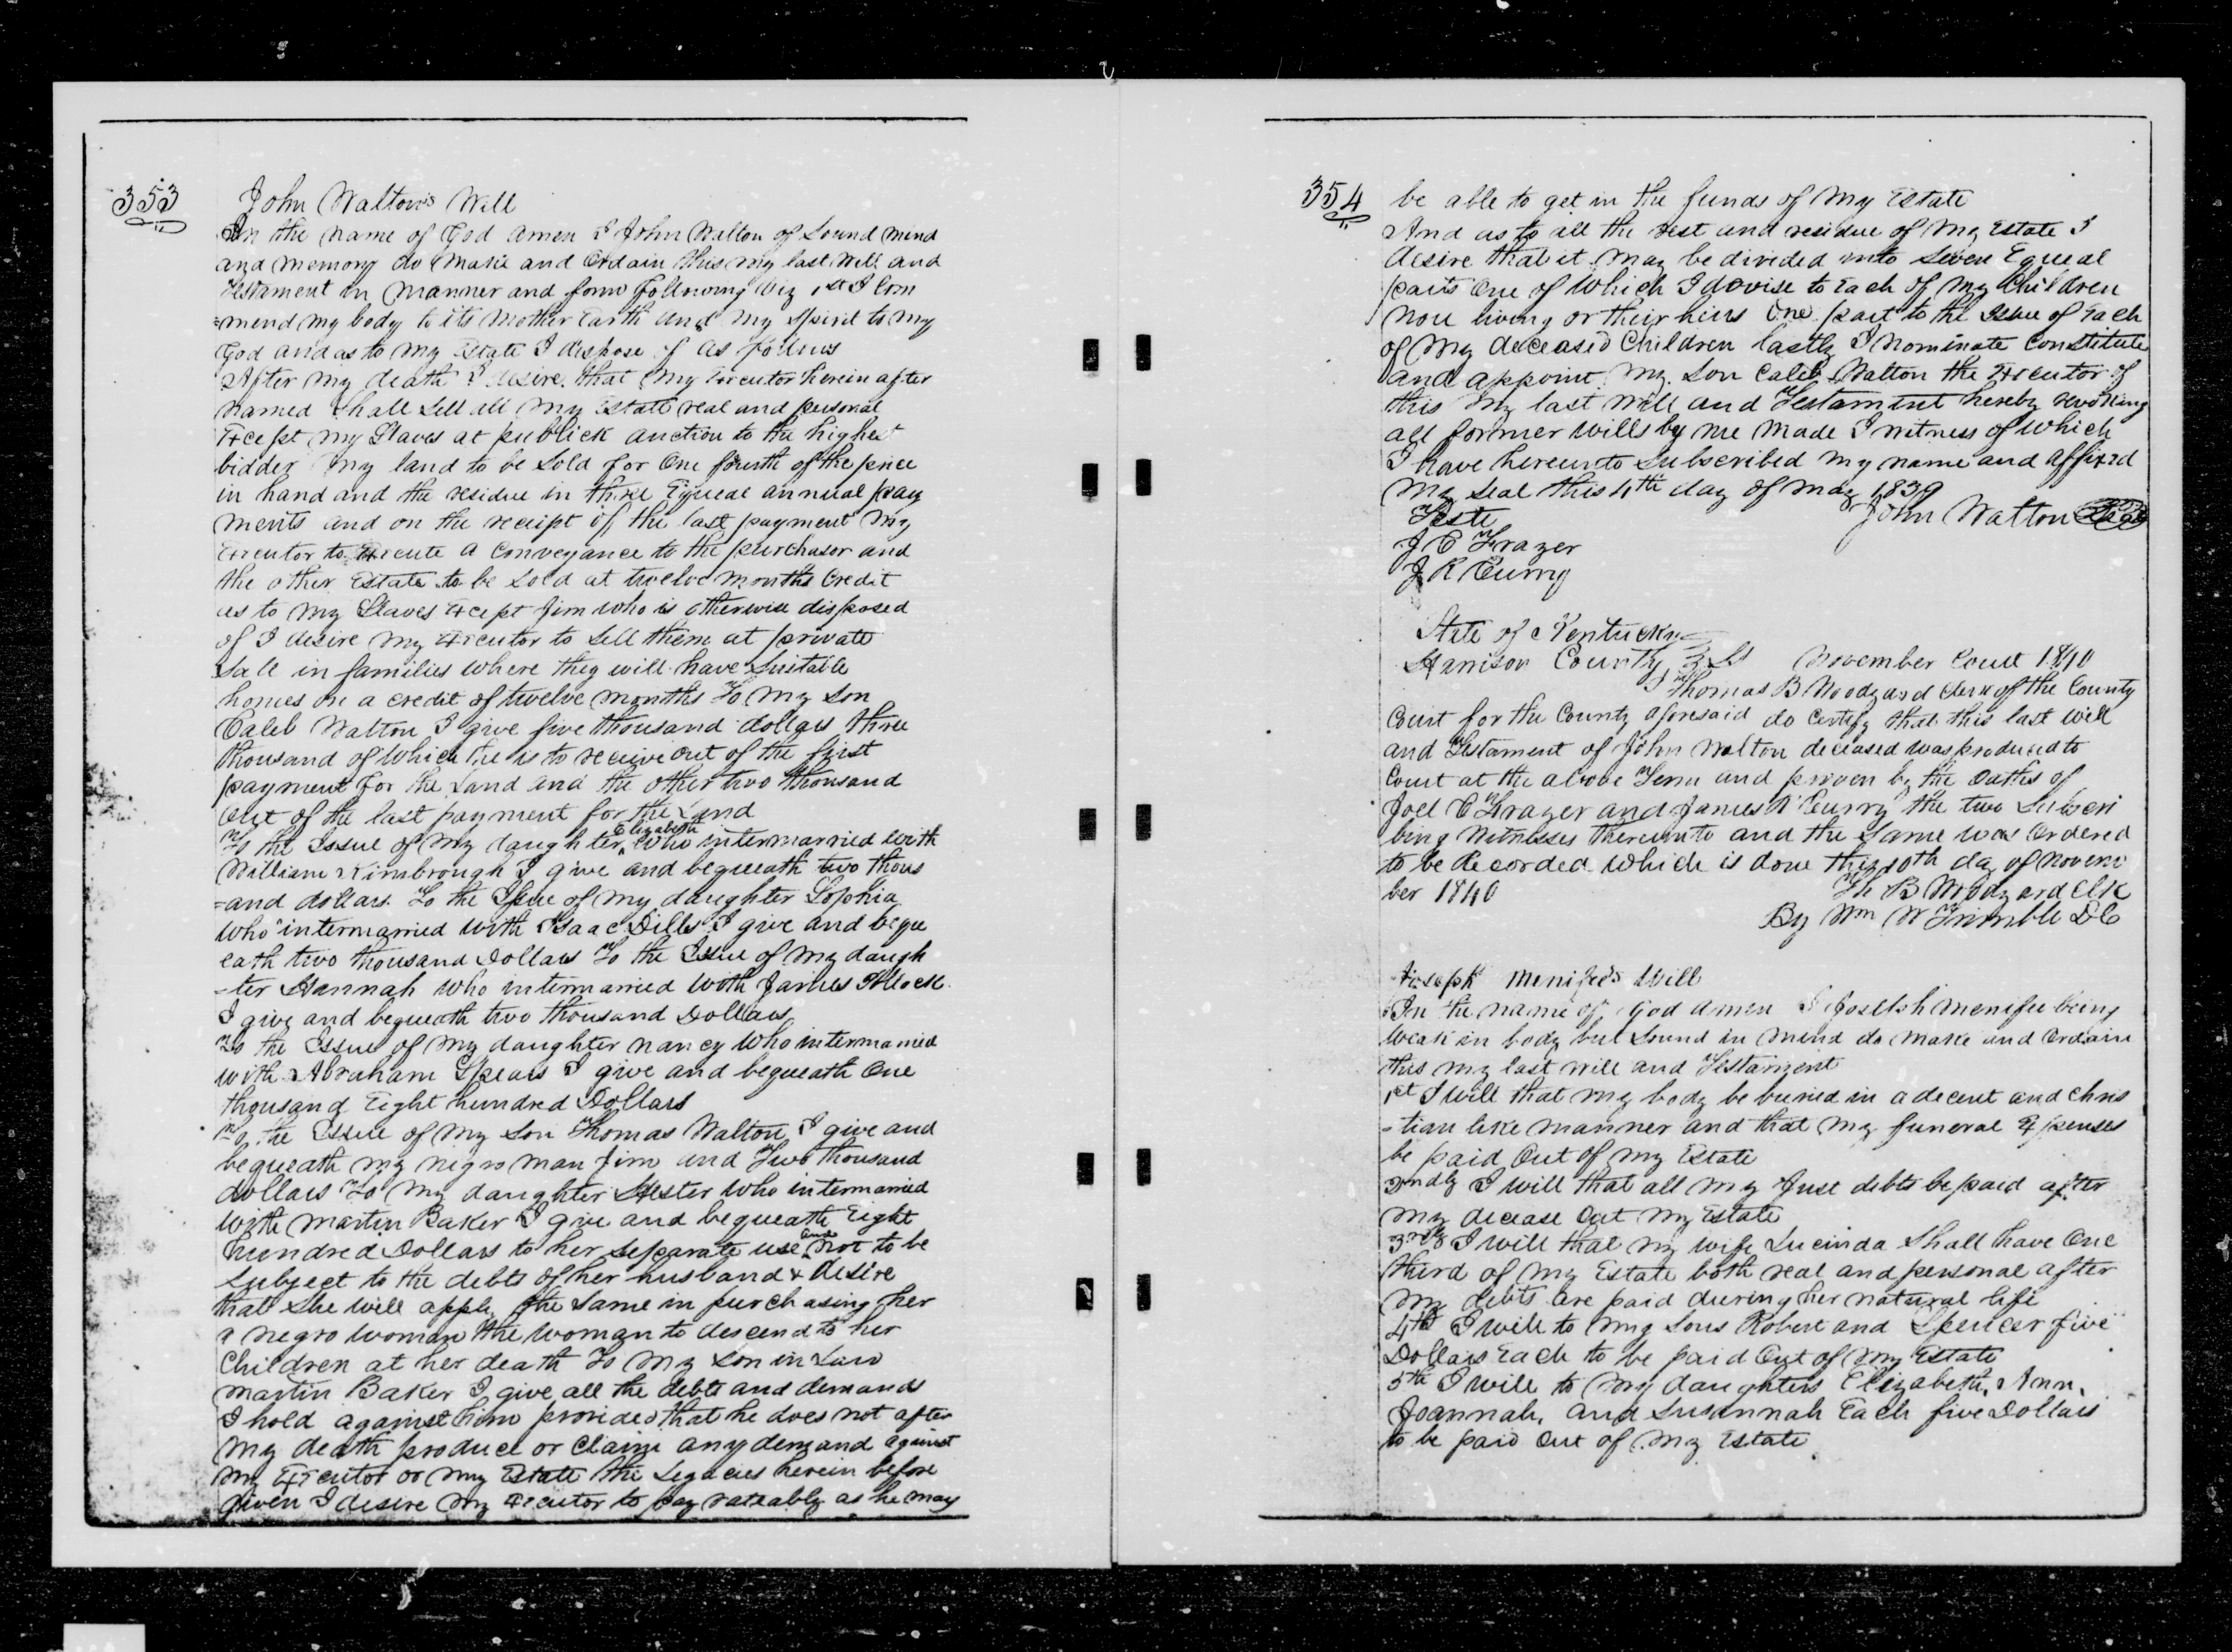 353
John Walton's Will
In the name of God amen I John Walton of Sound mind
and memory do make and Ordain this my last will and
Testament in manner and form following viz 1st I Com
=mend my body to its mother Earth and my Spirit to my
God and as to my Estate I dispose of as follows
After my death I desire that my Executor herein after
named shall sell all my Estate real and personal
Except my Slaves at publick auction to the highest
bidder my land to be sold for One fourth of the price
in hand and the residue in three Equeal annual pay
ments and on the receipt of the last payment my
Executor to Execute a Conveyance to the purchasor and
the other Estate to be sold at twelve months Credit
as to my Slaves Except Jim who is otherwise disposed
of I desire my Executor to sell them at private
Sale in families where they will have Suitable
homes on a credit of twelve months To my Son
Caleb Walton I give five thousand dollars three
thousand of which he is to receive out of the first
payment for the Land and the other two thousand
out of the last payment for the Land
To the Issue of my daughter Elizabeth who intermarried with
William Kimbrough I give and bequeath two thous
=and dollars To the Issue of my daughter Sophia
who intermarried with Isaac Dills I give and beque
eath two thousand Dollars To the Issue of my daugh
-ter Hannah who intermarried with James Pollock
I give and bequeath two thousand Dollars
To the Issue of my daughter nancy who intermarried
with Abraham Spears I give and bequeath One
thousand Eight hundred Dollars
To the Issue of my Son Thomas Walton I give and
bequeath my negro man Jim and Two thousand
dollars To my daughter Hester who intermarried
with Martin Baker I give and bequeath Eight
hundred Dollars to her separate use and not to be
subject to the debts of her husband & desire
that she will apply the same in purchasing her
a negro woman the woman to descend to her
Children at her death To my Son in Law
Martin Baker I give all the debts and demands
I hold against him provided that he does not after
my death produce or Claim any demand against
my Executor or my Estate the Legacies herein before
given I desire my Executor to pay rateably as he may
354
be able to get in the funds of my Estate
And as to all the rest and residue of my Estate I
desire that it may be divided into Seven Equeal
parts One of which I devise to Each of my Children
now living or their heirs One part to the Issue of Each
of my deceased Children lastly I nominate Constitute
and appoint my Son Caleb Walton the Executor of
this my last will and Testament hereby revoking
all former wills by me made I witness of which
I have hereunto Subscribed my name and affixed
my Seal this 4th day of May 1839
Teste
John Walton Seal
J C Frazer
J R Curry
State of Kentucky
Harrison County Sct November Court 1840
I Thomas B Woodyard Clerk of the County
Court for the County aforesaid do Certify that this last will
and Testament of John Walton deceased was produced to
Court at the above Term and proven by the Oaths of
Joel C Frazer and James R Curry the two Subscri
bing Witnesses thereunto and the Same was Ordered
to be Recorded which is done this 10th day of Novem
ber 1840
Th B Woodyard Clk
By Wm W Trimble DC
Joseph Menifee's Will
In the name of God amen I Joseph Menifee being
weak in body but Sound in mind do make and Ordain
this my last will and Testament
1st I will that my body be buried in a decent and Chris
-tian like manner and that my funeral Expenses
be paid Out of my Estate
2ndly I will that all my Just debts be paid after
my decease Out my Estate
3rdly I will that my wife Lucinda shall have One
third of my Estate both real and personal after
my debts are paid during her natural life
4th I will to my Sons Robert and Spencer five
Dollars Each to be paid Out of my Estate
5th I will to my daughters Elizabeth, Ann,
Joannah, and Susannah Each five Dollars
to be paid Out of my Estate